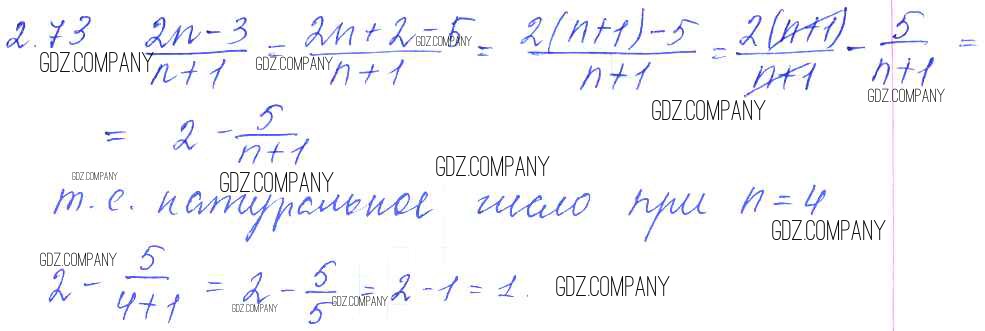 2.73 (2n-3)/(n+1) = (2n+2-5)/(n+1) = (2(n+1)-5)/(n+1) = (2(n+1))/(n+1) - 5/(n+1) =
GDZ.COMPANY GDZ.COMPANY GDZ.COMPANY GDZ.COMPANY GDZ.COMPANY
= 2 - 5/(n+1)
GDZ.COMPANY GDZ.COMPANY GDZ.COMPANY
т.е. натуральное число при n=4
GDZ.COMPANY
2 - 5/(4+1) = 2 - 5/5 = 2 - 1 = 1.
GDZ.COMPANY GDZ.COMPANY GDZ.COMPANY GDZ.COMPANY